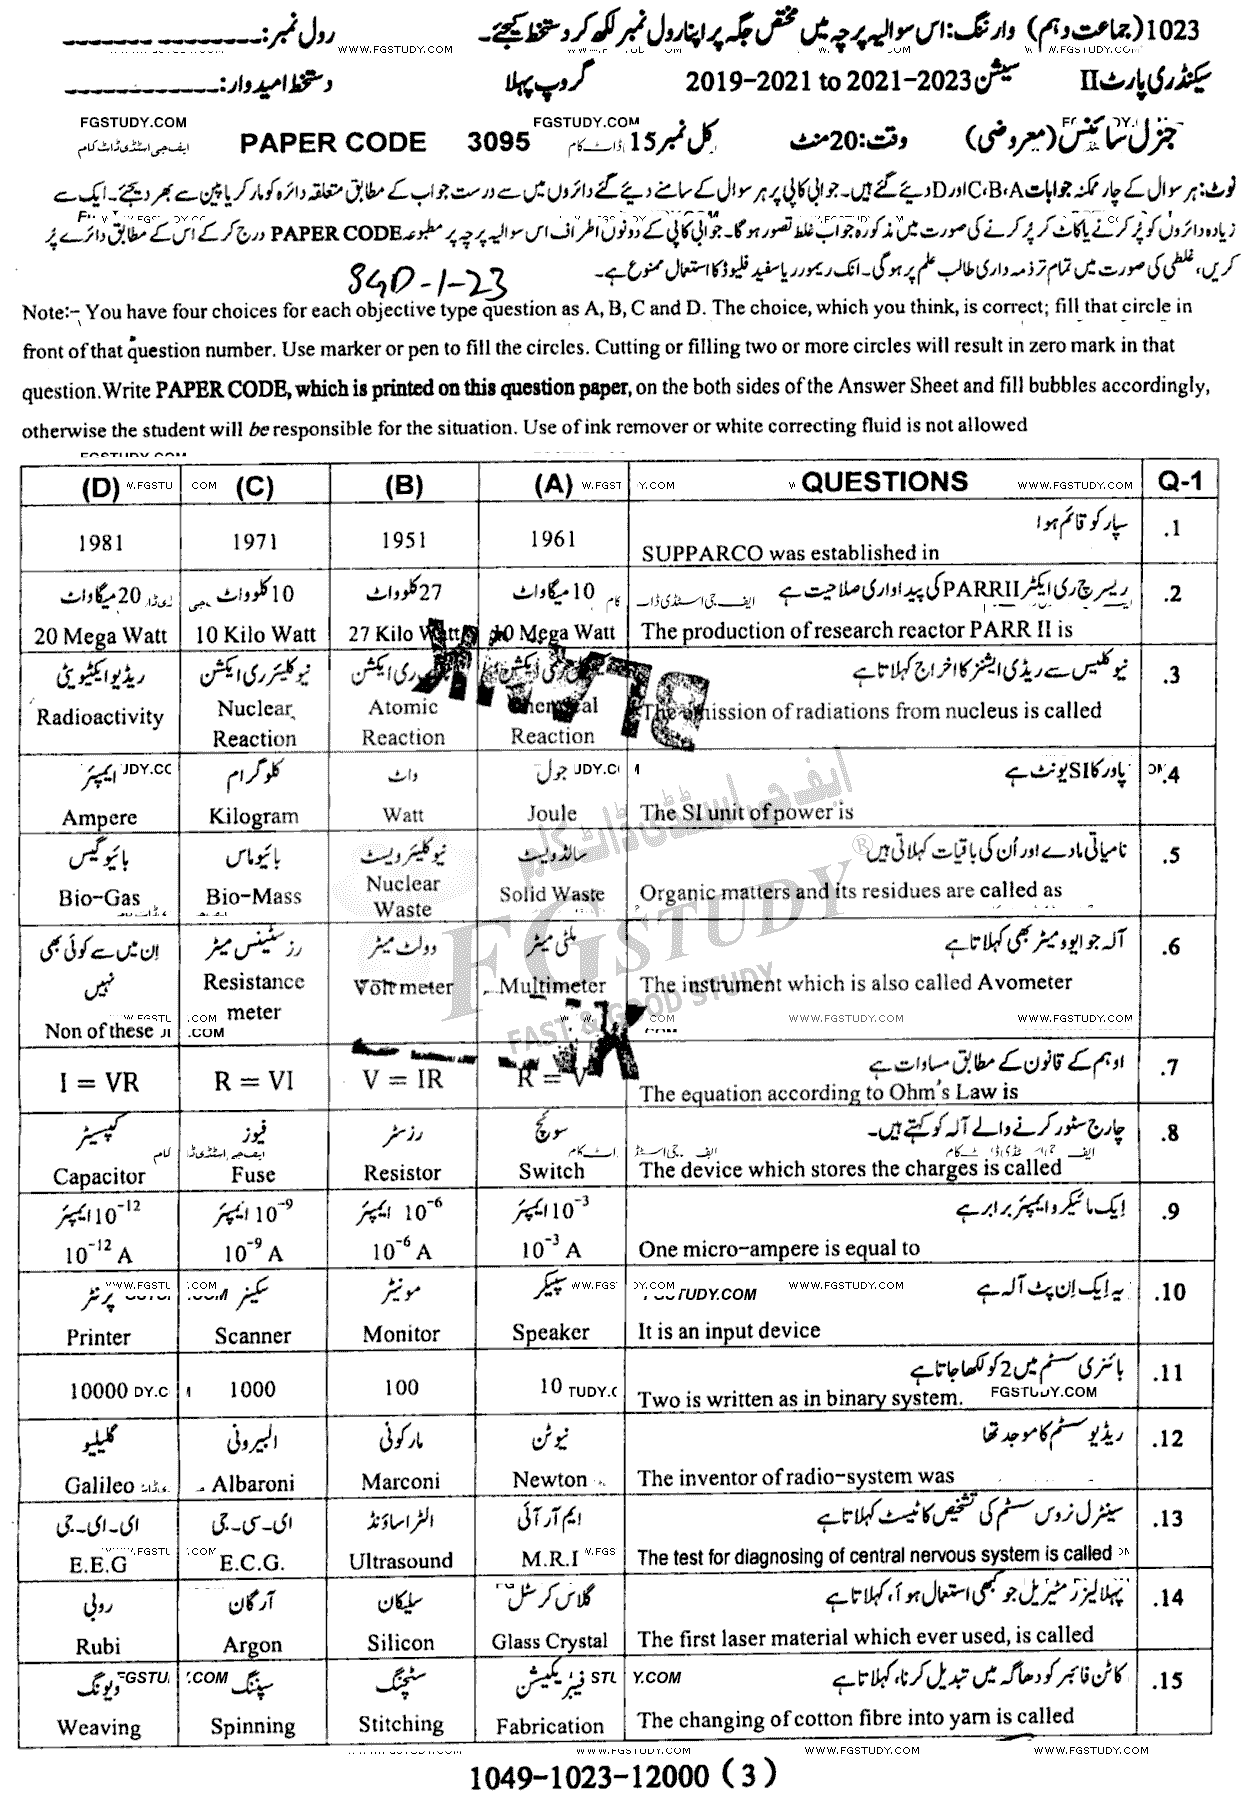 1023 (جماعت دہم) وارننگ: اس سوالیہ پرچہ میں مختص جگہ پر اپنا رول نمبر لکھ کر دستخط کیجئے۔ رول نمبر:
WWW.FGSTUDY.COM
سیکنڈری پارٹ II سیشن 2021-2023 to 2019-2021 گروپ پہلا دستخط امیدوار:
FGSTUDY.COM FGSTUDY.COM
جنرل سائنس (معروضی) وقت: 20 منٹ کل نمبر 15 PAPER CODE 3095
ایف جی اسٹڈی ڈاٹ کام
نوٹ: ہر سوال کے چار ممکنہ جوابات A، B، C اور D دیئے گئے ہیں۔ جوابی کاپی پر ہر سوال کے سامنے دیئے گئے دائروں میں سے درست جواب کے مطابق متعلقہ دائرہ کو مارکر یا پین سے بھر دیجئے۔ ایک سے
زیادہ دائروں کو پُر کرنے یا کاٹ کر پُر کرنے کی صورت میں مذکورہ جواب غلط تصور ہوگا۔ جوابی کاپی کے دونوں اطراف اس سوالیہ پرچہ پر مطبوعہ PAPER CODE درج کر کے اس کے مطابق دائرے پُر
کریں، غلطی کی صورت میں تمام تر ذمہ داری طالب علم پر ہوگی۔ انک ریموور یا سفید فلیوڈ کا استعمال ممنوع ہے۔
SGD-1-23
Note:- You have four choices for each objective type question as A, B, C and D. The choice, which you think, is correct; fill that circle in
front of that question number. Use marker or pen to fill the circles. Cutting or filling two or more circles will result in zero mark in that
question. Write PAPER CODE, which is printed on this question paper, on the both sides of the Answer Sheet and fill bubbles accordingly,
otherwise the student will be responsible for the situation. Use of ink remover or white correcting fluid is not allowed
(D) (C) (B) (A) QUESTIONS Q-1
سپارکو قائم ہوا .1
1981 1971 1951 1961 SUPPARCO was established in
20 میگاواٹ 10 کلوواٹ 27 کلوواٹ 10 میگاواٹ ریسرچ ری ایکٹر PARR II کی پیداواری صلاحیت ہے .2
20 Mega Watt 10 Kilo Watt 27 Kilo Watt 10 Mega Watt The production of research reactor PARR II is
ریڈیو ایکٹیویٹی نیوکلیئر ری ایکشن ری ایکشن ری ایکشن نیوکلیس سے ریڈی ایشنز کا اخراج کہلاتا ہے .3
Radioactivity Nuclear Reaction Atomic Reaction Chemical Reaction The emission of radiations from nucleus is called
BLANK
ایمپیئر کلوگرام واٹ جول پاور کا SI یونٹ ہے .4
Ampere Kilogram Watt Joule The SI unit of power is
بائیو گیس بائیو ماس نیوکلیئر ویسٹ سالڈ ویسٹ نامیاتی مادے اور اُن کی باقیات کہلاتی ہیں .5
Bio-Gas Bio-Mass Nuclear Waste Solid Waste Organic matters and its residues are called as
ایف جی اسٹڈی ڈاٹ کام
FGSTUDY ®
FAST & GOOD STUDY
اِن میں سے کوئی بھی نہیں رزسٹینس میٹر وولٹ میٹر ملٹی میٹر آلہ جو ایوومیٹر بھی کہلاتا ہے .6
Non of these Resistance meter Volt meter Multimeter The instrument which is also called Avometer
اوہم کے قانون کے مطابق مساوات ہے .7
I = VR R = VI V = IR R = V The equation according to Ohm's Law is
کپیسیٹر فیوز رزسٹر سوئچ چارج سٹور کرنے والے آلہ کو کہتے ہیں۔ .8
Capacitor Fuse Resistor Switch The device which stores the charges is called
10⁻¹² ایمپیئر 10⁻⁹ ایمپیئر 10⁻⁶ ایمپیئر 10⁻³ ایمپیئر ایک مائیکرو ایمپیئر برابر ہے .9
10⁻¹² A 10⁻⁹ A 10⁻⁶ A 10⁻³ A One micro-ampere is equal to
پرنٹر سکینر مونیٹر سپیکر یہ ایک اِن پٹ آلہ ہے .10
Printer Scanner Monitor Speaker It is an input device
بائنری سسٹم میں 2 کو لکھا جاتا ہے .11
10000 1000 100 10 Two is written as in binary system.
FGSTUDY.COM
گلیلیو البیرونی مارکونی نیوٹن ریڈیو سسٹم کا موجد تھا .12
Galileo Albaroni Marconi Newton The inventor of radio-system was
ای۔ای۔جی ای۔سی۔جی الٹراساؤنڈ ایم آر آئی سینٹرل نروس سسٹم کی تشخیص کا ٹیسٹ کہلاتا ہے .13
E.E.G E.C.G. Ultrasound M.R.I The test for diagnosing of central nervous system is called
روبی آرگان سلیکان گلاس کرسٹل پہلا لیزر مٹیریل جو کبھی استعمال ہوا، کہلاتا ہے .14
Rubi Argon Silicon Glass Crystal The first laser material which ever used, is called
ویونگ سپننگ سٹچنگ فیبریکیشن کاٹن فائبر کو دھاگہ میں تبدیل کرنا، کہلاتا ہے .15
Weaving Spinning Stitching Fabrication The changing of cotton fibre into yarn is called
WWW.FGSTUDY.COM WWW.FGSTUDY.COM
1049-1023-12000 (3)